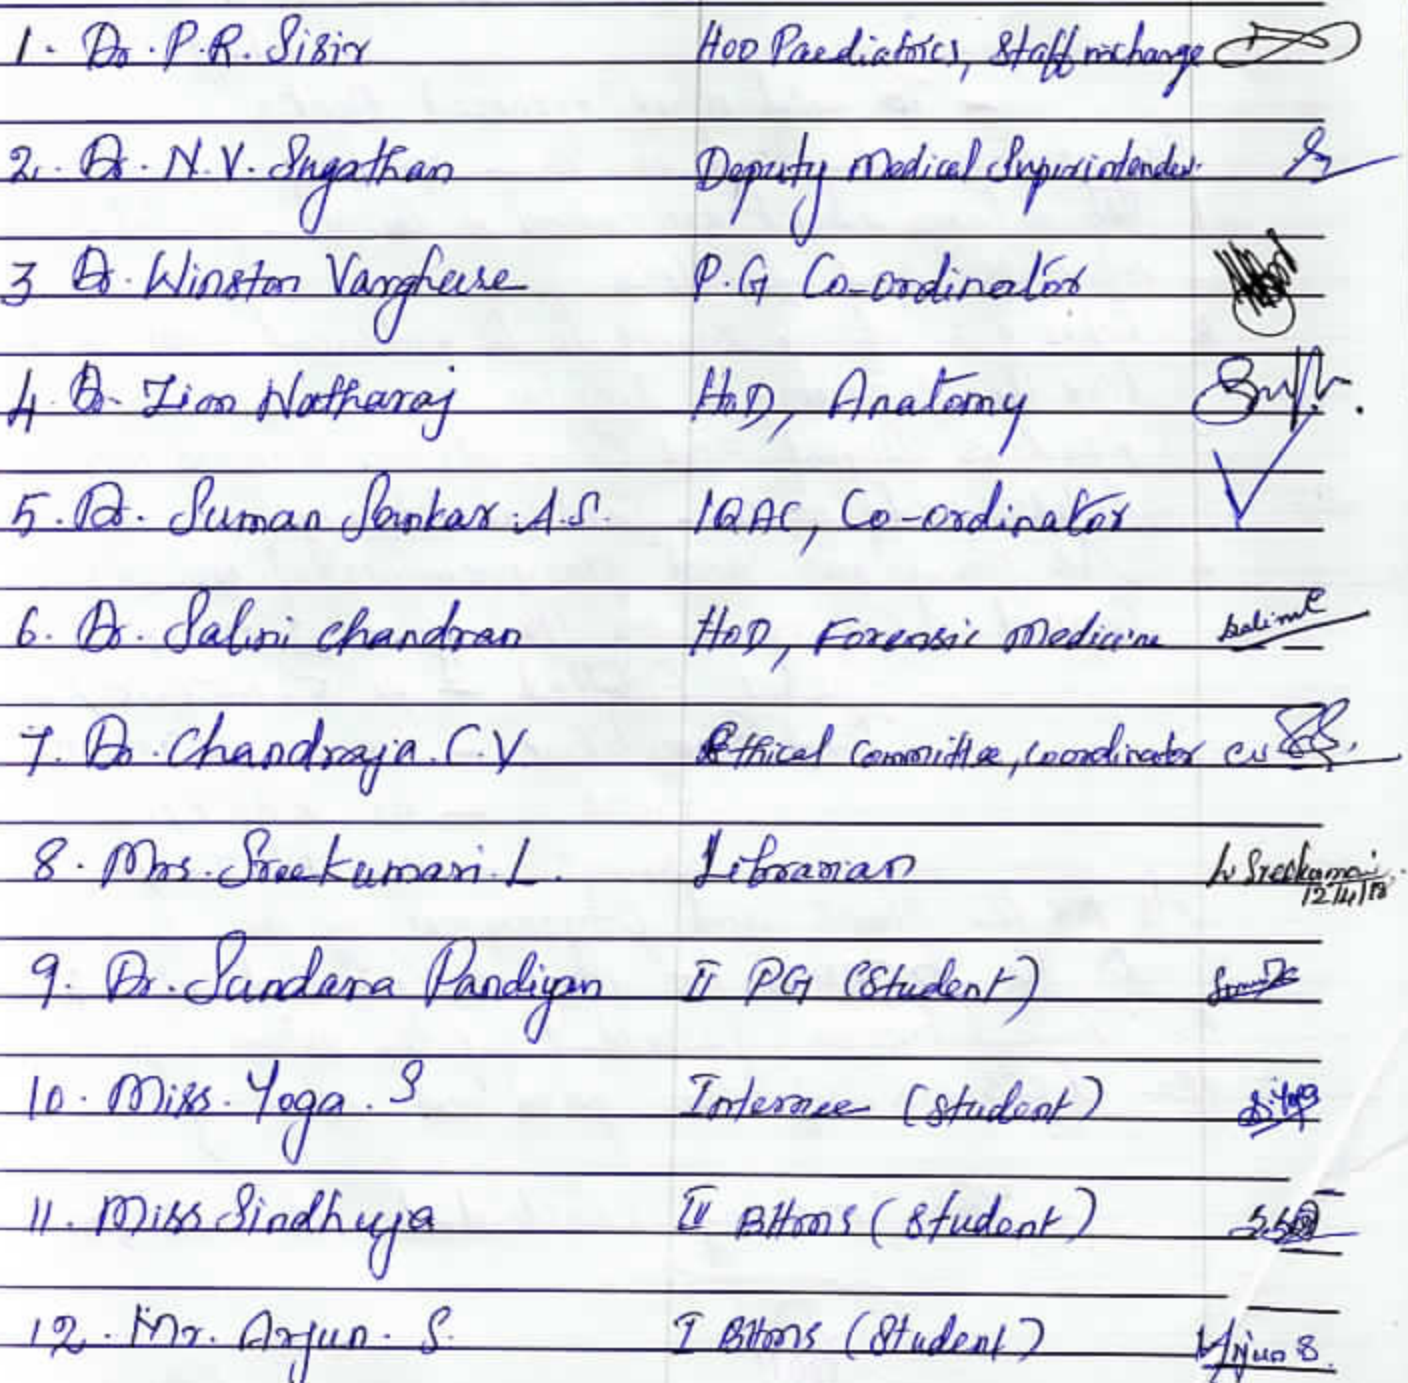 1. Dr. P.R. Sisir HOD Paediatrics, Staff incharge
2. Dr. N.V. Sugathan Deputy Medical Superintendent
3 Dr. Winston Varghese P.G Co-ordinator
4. Dr. Zion Natharaj HoD, Anatomy
5. Dr. Suman Sankar. A.S. IQAC, Co-ordinator
6. Dr. Salini Chandran HoD, Forensic Medicine
7. Dr. Chandraja. C.V Ethical Committee, Coordinator
8. Mrs. Sreekumari. L. Librarian
9. Dr. Sundara Pandiyan II PG (Student)
10. Miss. Yoga. S Internee (Student)
11. Miss Sindhuja BHMS (Student)
12. Mr. Arjun. S. I BHMS (Student) Arjun S.